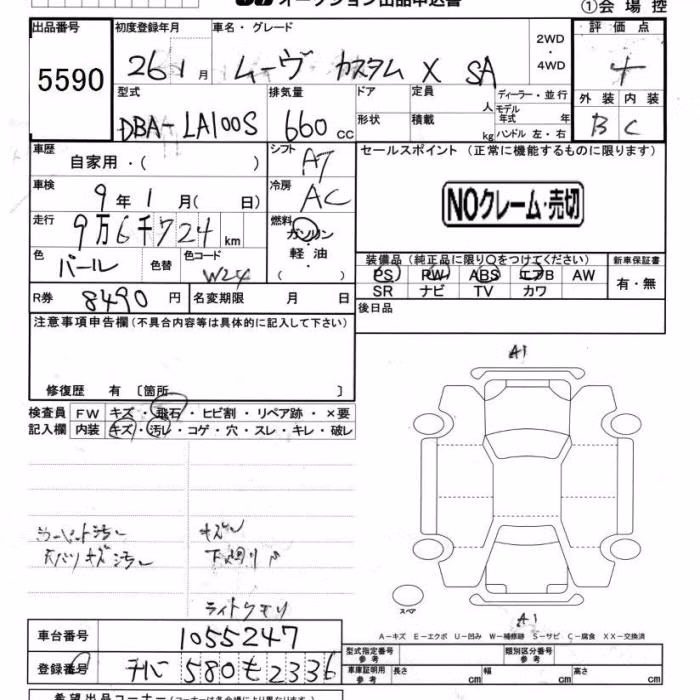 オークション出品申込書
①会場控
出品番号 5590
初度登録年月 26 1月
車名・グレード ムーヴ カスタム X SA
2WD・4WD
評価点 4
外装 B 内装 C
型式 DBA-LA100S
排気量 660 cc
ドア 形状
定員 人 積載 kg
ディーラー・並行
モデル年式 年
ハンドル 左・右
車歴 自家用・( )
シフト AT
セールスポイント (正常に機能するものに限ります)
NOクレーム・売切
車検 9年1月( 日)
冷房 AC
走行 9万6千724km
燃料 ガソリン・軽油・( )
色 パール 色替 色コード W24
装備品 (純正品に限り○をつけてください)
新車保証書
PS PW ABS エアB AW
SR ナビ TV カワ
有・無
R券 8490円 名変期限 月 日
後日品
注意事項申告欄 (不具合内容等は具体的に記入して下さい)
修復歴 有 〔箇所 〕
検査員 FW キズ・飛石・ヒビ割・リペア跡・×要
記入欄 内装 キズ・汚レ・コゲ・穴・スレ・キレ・破レ
A1
キズ
ライトクモリ
スペア
A1
A-キズ E-エクボ U-凹み W-補修跡 S-サビ C-腐食 XX-交換済
車台番号 1055247
型式指定番号 参考
類別区分番号 参考
登録番号 千バ 580 も 2336
車庫証明用 参考 長さ 幅 高さ
希望出品コーナー (コーナーは各会場により異なります)